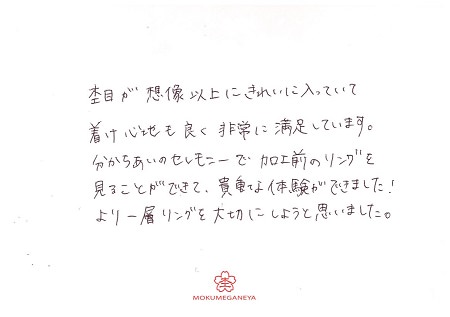 杢目が想像以上にきれいに入っていて
着け心地も良く非常に満足しています。
分かちあいのセレモニーで加工前のリングを
見ることができて、貴重な体験ができました!
より一層リングを大切にしようと思いました。
杢
MOKUMEGANEYA